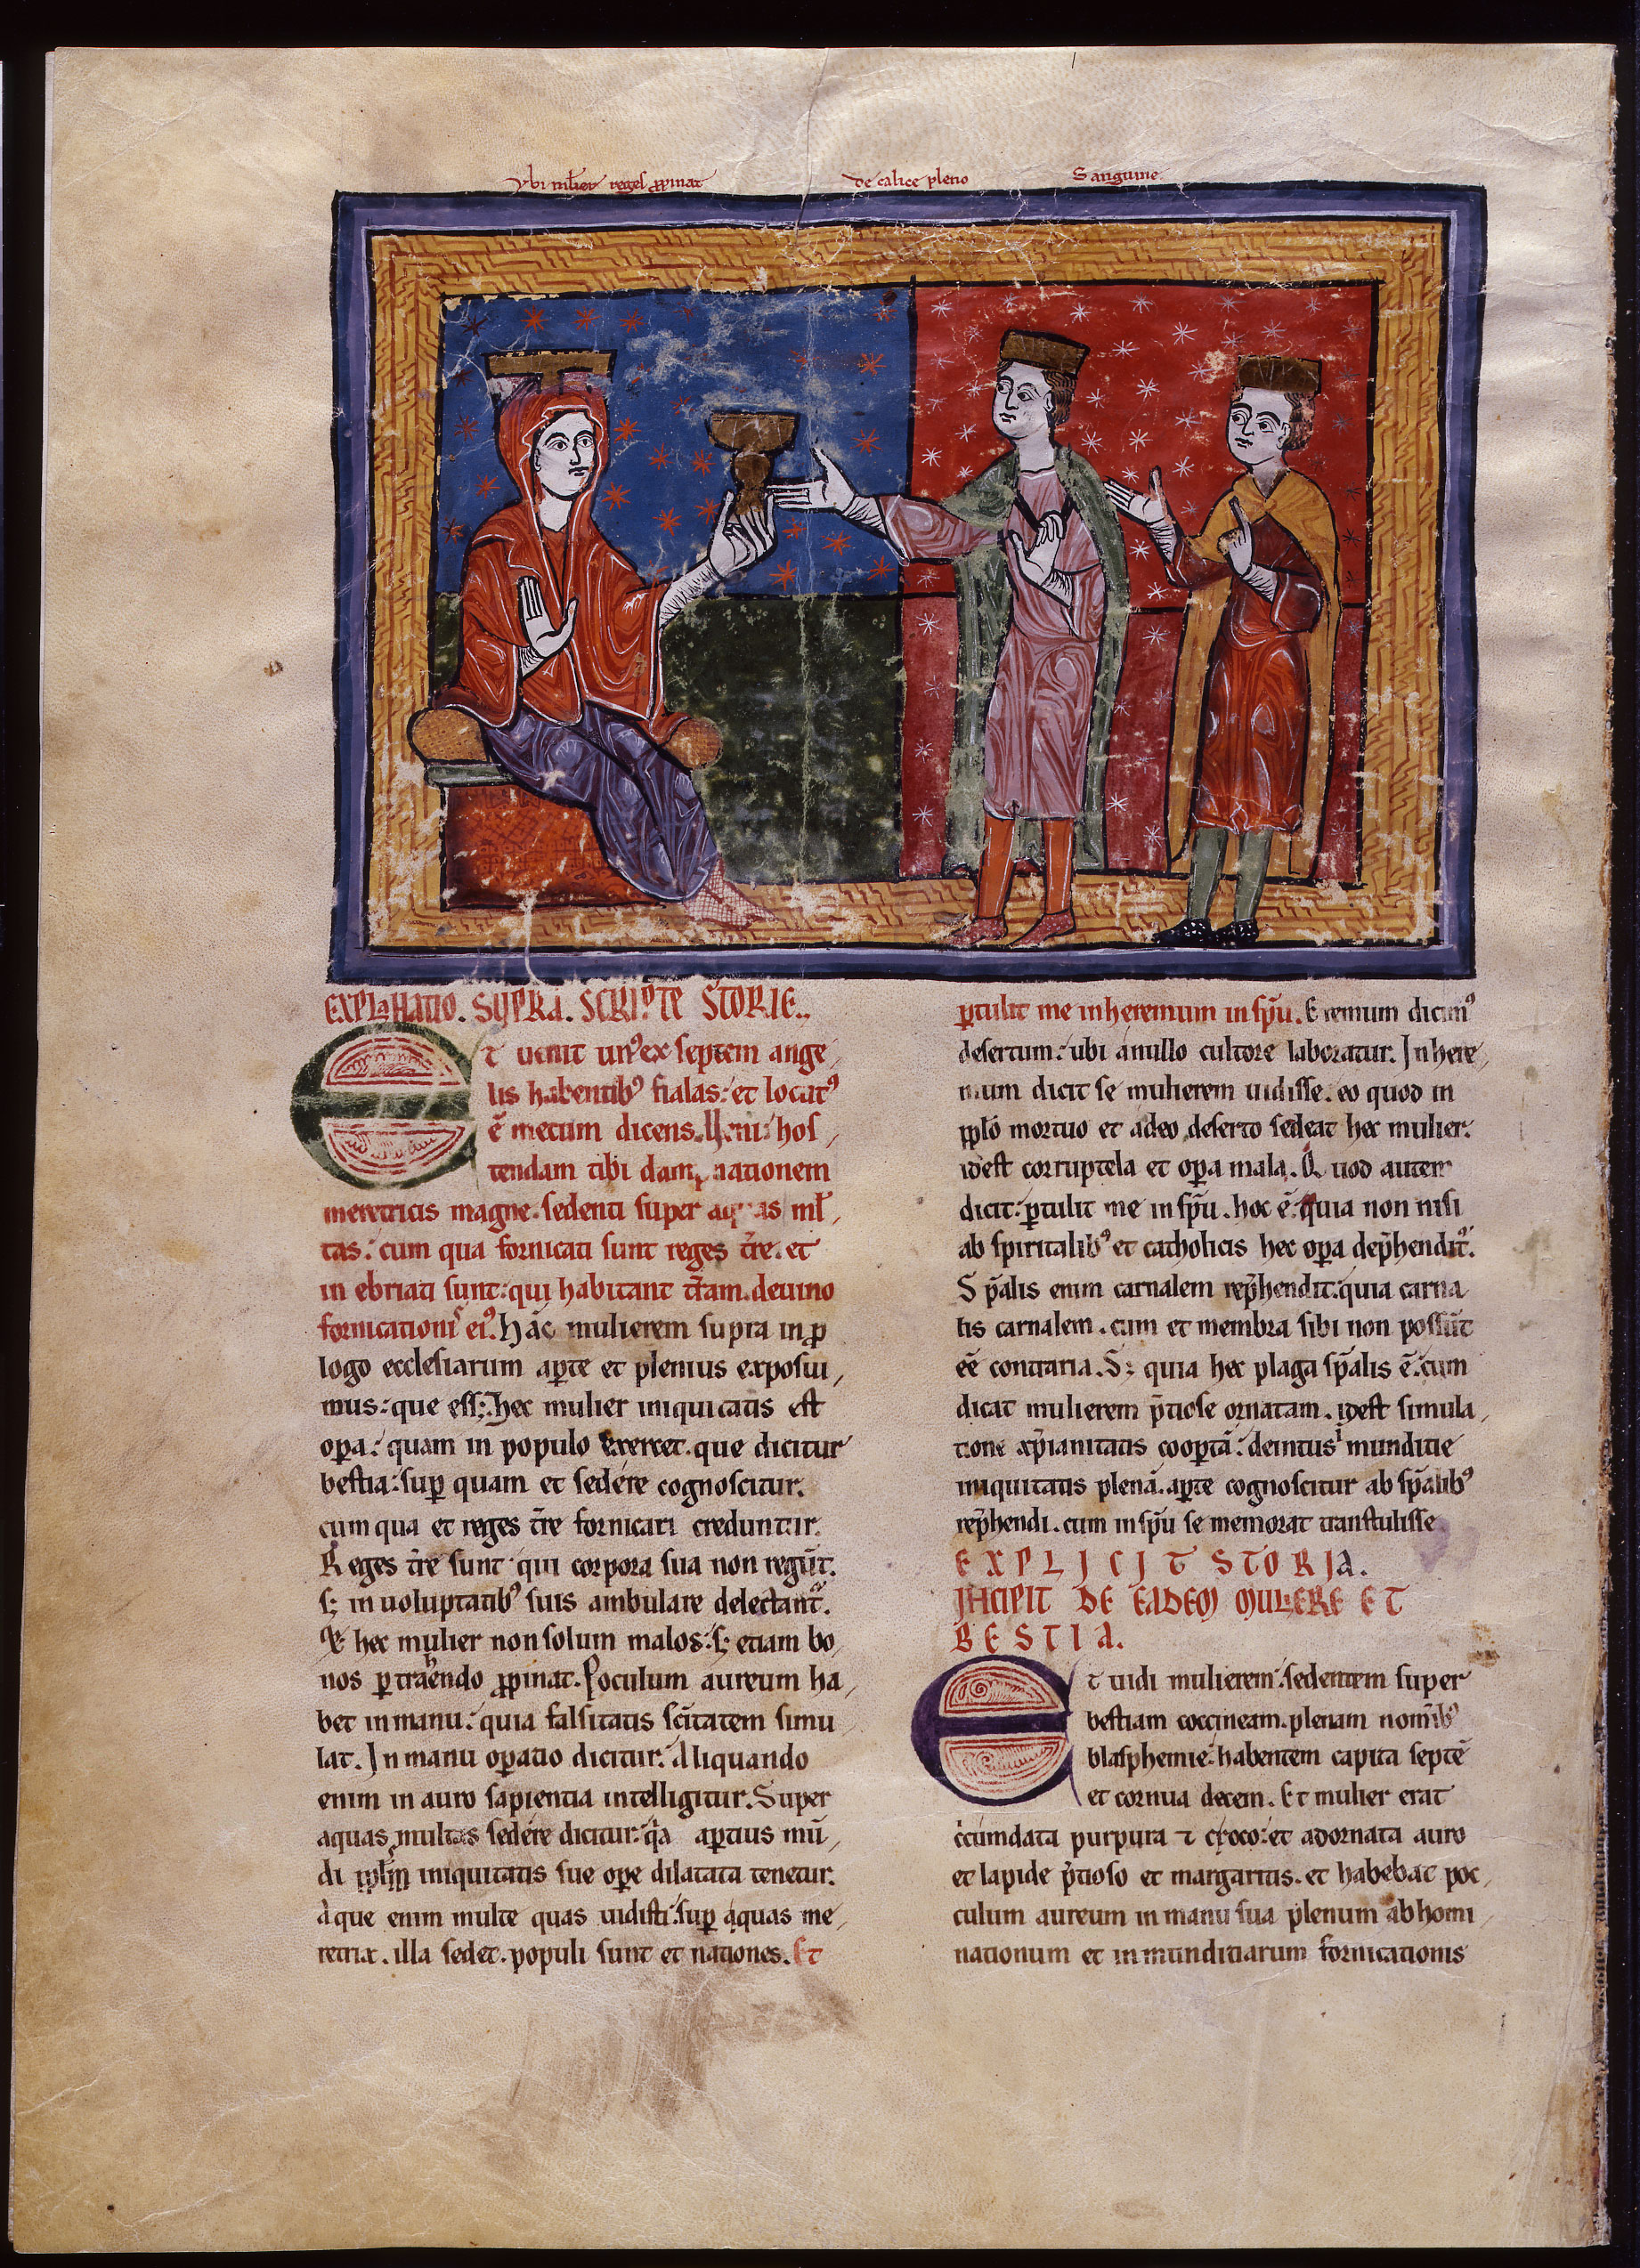 Vbi mulier reges ꝓpinat de calice pleno Sanguine
EXPLANATIO. SUPRA. SCRIPTE STORIE.
ET uenit unꝰ ex septem ange
lis habentibꝰ fialas: et locutꝰ
ē mecum dicens. Ueni: hos
tendam tibi dampnationem
meretricis magne. sedenti super aquas ml̄
tas: cum qua fornicati sunt reges t̄re. et
in ebriati sunt: qui habitant t̄ram. de uino
fornicationis eiꝰ. hāc mulierem supra in ꝓ
logo ecclesiarum aꝑte et plenius exposui
mus: que ess; hec mulier iniquitatis est
oꝑa: quam in populo exercet. que dicitur
bestia: suꝑ quam et sedere cognoscitur.
cum qua et reges t̄re fornicari creduntur.
Reges t̄re sunt qui corpora sua non regūt.
s; in uoluptatibꝰ suis ambulare delectant᷑.
hec mulier non solum malos: s; etiam bo
nos ꝑtrahendo ꝓpinat. Poculum aureum ha
bet in manu: quia falsitatis sc̄itatem simu
lat. In manu oꝑatio dicitur. Aliquando
enim in auro sapientia intelligitur. Super
aquas multas sedere dicitur: q̄a aꝑtius mū
di ipl̄m iniquitatis sue oꝑe dilatata tenetur.
Aque enim multe quas uidisti: suꝑ aquas me
retrix. illa sedet. populi sunt et nationes. Et
ꝑtulit me in heremum in sp̄u. Eremum dicimꝰ
desertum: ubi a nullo cultore laboratur. In here
mum dicit se mulierem uidisse. eo quod in
pp̄lo mortuo et a deo deserto sedeat hec mulier:
idest corruptela et oꝑa mala. Quod autem
dicit: ꝑtulit me in sp̄u. hoc ē: quia non nisi
ab spiritalibꝰ et catholicis hec oꝑa dep̄hendit᷑.
Sp̄alis enim carnalem rep̄hendit: quia carna
lis carnalem. cum et membra sibi non possūt
eē contraria. S; quia hec plaga sp̄alis ē. cum
dicat mulierem p̄tiose ornatam. idest simula
tione xp̄ianitatis cooptā: deintus inmunditie
iniquitatis plenā. aꝑte cognoscitur ab sp̄alibꝰ
rep̄hendi. cum in sp̄u se memorat transtulisse
EXPLICIT STORIA.
INCIPIT DE EADEM MULIERE ET
BESTIA.
ET uidi mulierem: sedentem super
bestiam coccineam. plenam nominibꝰ
blasphemie: habentem capita septē
et cornua decem. Et mulier erat
c̄cumdata purpura ⁊ croco: et adornata auro
et lapide p̄tioso et margaritis. et habebat poc
culum aureum in manu sua plenum abhomi
nationum et inmunditiarum fornicationis